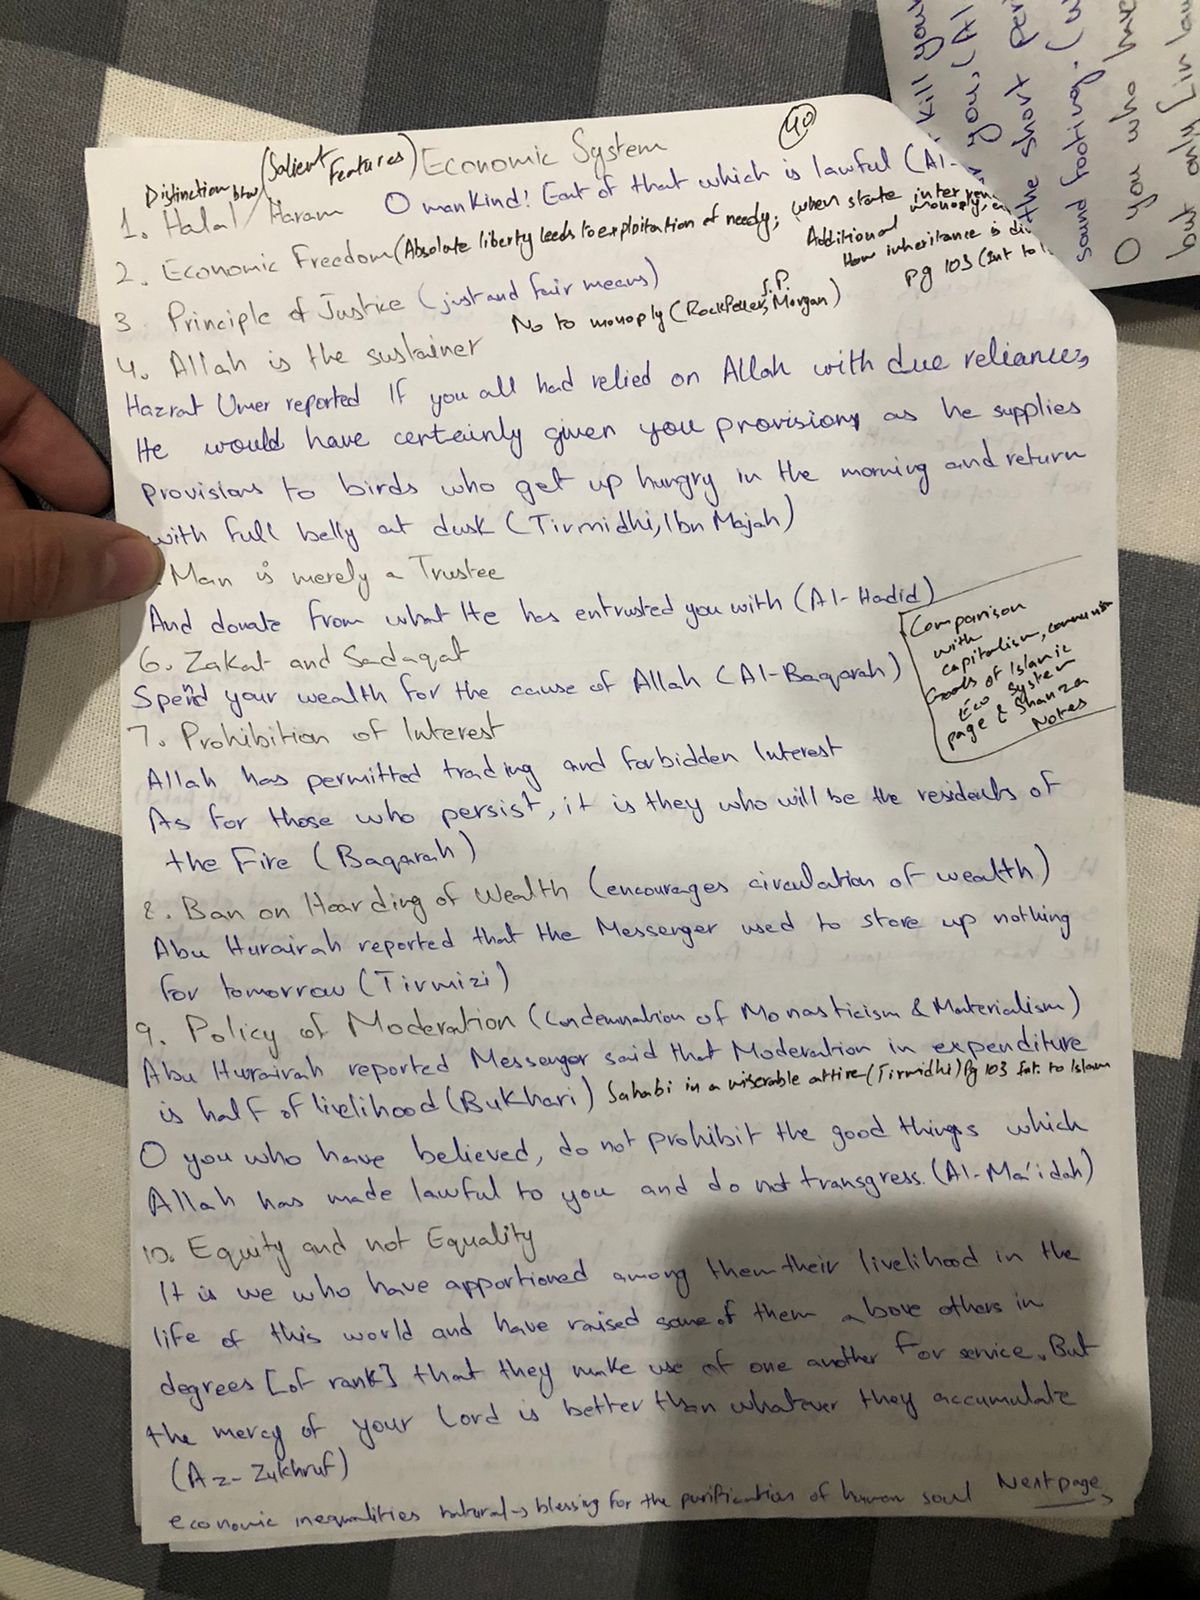 40
(Salient Features) Economic System
Distinction btw
1. Halal/Haram O mankind! Eat of that which is lawful (Al-
2. Economic Freedom (Absolute liberty leads to exploitation of needy; when state
monopoly,
Additional
How inheritance is
pg 103 (Int to
3. Principle of Justice (just and fair means)
No to monoply (Rockfeller, J.P. Morgan)
4. Allah is the sustainer
Hazrat Umer reported If you all had relied on Allah with due reliance,
He would have certainly given you provisions as he supplies
provisions to birds who get up hungry in the morning and return
with full belly at dusk (Tirmidhi, Ibn Majah)
. Man is merely a Trustee
And donate from what He has entrusted you with (Al-Hadid)
Comparison
with
capitalism, communism
Goods of Islamic
Eco system
page & Shanza
Notes
6. Zakat and Sadaqat
Spend your wealth for the cause of Allah (Al-Baqarah)
7. Prohibition of Interest
Allah has permitted trading and forbidden Interest
As for those who persist, it is they who will be the residents of
the Fire (Baqarah)
8. Ban on Hoarding of Wealth (encourages circulation of wealth)
Abu Hurairah reported that the Messenger used to store up nothing
for tomorrow (Tirmizi)
9. Policy of Moderation (Condemnation of Monasticism & Materialism)
Abu Hurairah reported Messenger said that Moderation in expenditure
is half of livelihood (Bukhari) Sahabi in a miserable attire (Tirmidhi) Pg 103 Int. to Islam
O you who have believed, do not prohibit the good things which
Allah has made lawful to you and do not transgress. (Al-Ma'idah)
10. Equity and not Equality
It is we who have apportioned among them their livelihood in the
life of this world and have raised some of them above others in
degrees [of rank] that they make use of one another for service. But
the mercy of your Lord is better than whatever they accumulate
(Az-Zukhruf)
economic inequalities natural → blessing for the purification of human soul Next page
kill your
you, (Al
the short per
sound footing. (
O you who have
but only [in law